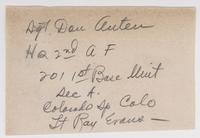 Sgt. Don Auten
Hq 2nd A F
201 1st Base Unit
Sec A.
Colorado Sp Colo
Lt Ray Evans —